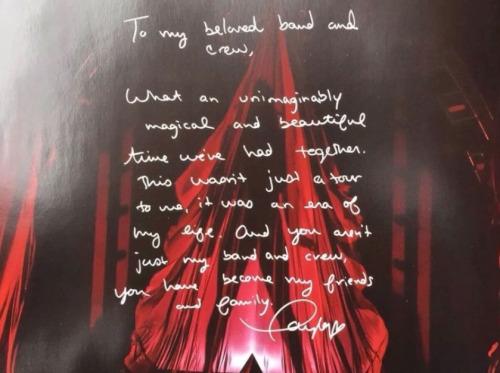 To my beloved band and
crew,
What an unimaginably
magical and beautiful
time we've had together.
This wasn't just a tour
to me, it was an era of
my life. And you aren't
just my band and crew,
you have become my friends
and family. Taylor